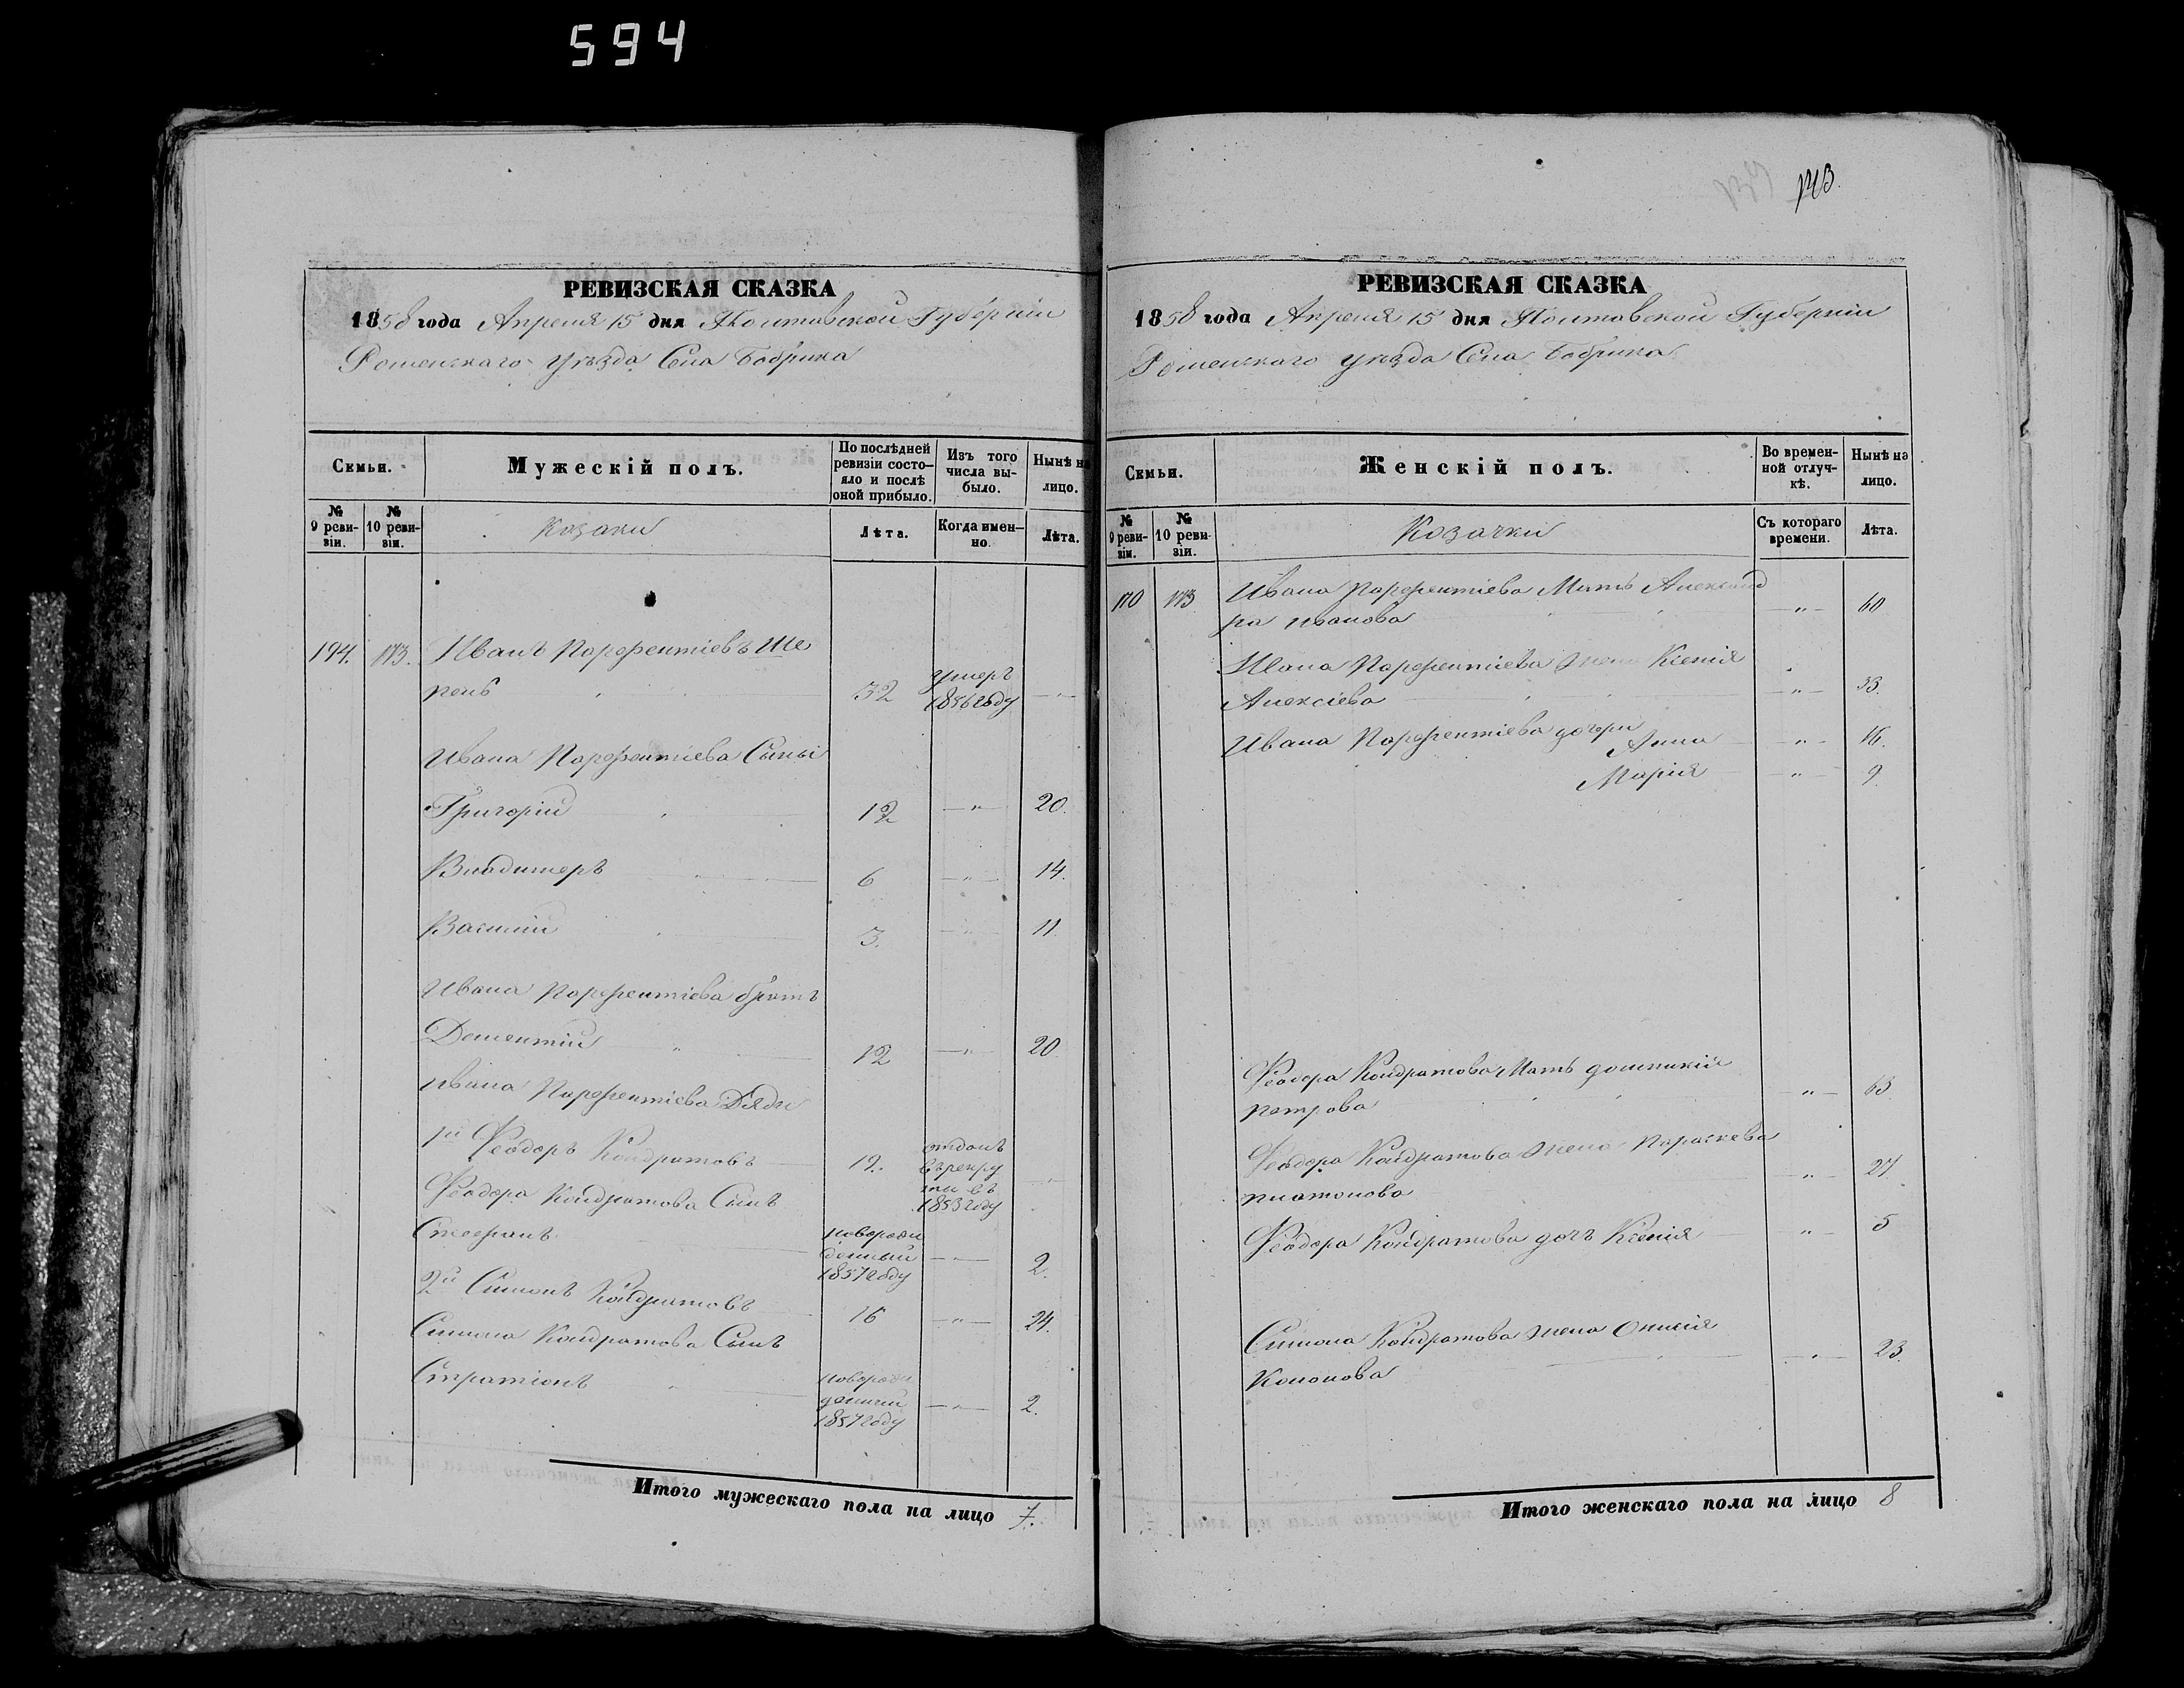 594
РЕВИЗСКАЯ СКАЗКА
1858 года Апреля 15 дня Полтавской Губерніи
Роменскаго уѣзда Села Бобрика
Семьи.
Мужескій полъ.
По послѣдней ревизіи состояло и послѣ оной прибыло.
Изъ того числа выбыло.
Нынѣ на лицо.
№ 9 ревизіи.
№ 10 ревизіи.
Козаки
Лѣта.
Когда именно.
Лѣта.
194. 173. Иванъ Парфентіевъ Ше
пель 32 умеръ 1856 году
Ивана Парфентіева Сыны
Григорій 12 — " — 20.
Владимеръ 6 — " — 14.
Василій 3. — " — 11.
Ивана Парфентіева братъ
Дементій 12 — " — 20
Ивана Парфентіева Дяди
1й Феодоръ Кондратовъ 19. отданъ въ рекруты въ 1853 году
Феодора Кондратова Сынъ
Стефанъ новорожденный 1857 году — " — 2.
2й Симонъ Кондратовъ 16 — " — 24.
Симона Кондратова Сынъ
Стратіонъ новорожденный 1857 году — " — 2.
Итого мужескаго пола на лицо 7.
РЕВИЗСКАЯ СКАЗКА
1858 года Апреля 15 дня Полтавской Губерніи
Роменскаго уѣзда Села Бобрика
Семьи.
Женскій полъ.
Во временной отлучкѣ.
Нынѣ на лицо.
№ 9 ревизіи.
№ 10 ревизіи.
Козачки
Съ котораго времени.
Лѣта.
170 173 Ивана Парфентіева Мать Александ
ра Иванова — " — 60
Ивана Парфентіева жена Ксенія
Алексіева — " — 33.
Ивана Парфентіева дочери
Анна — " — 16.
Марія — " — 9
Феодора Кондратова Мать
петрова — " — 63.
Феодора Кондратова жена Параскева
платонова — " — 27.
Феодора Кондратова дочь Ксенія " 5
Симона Кондратова жена
Кононова — " — 23.
Итого женскаго пола на лицо 8